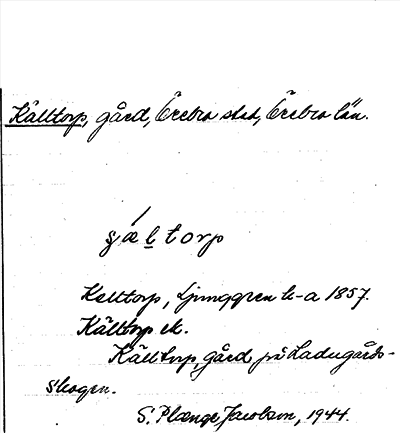 Källtorp, gård, Örebro stad, Örebro län.
Källtorp, Ljunggren k-a 1857.
Källtorp ek.
Källtorp, gård på Ladugårds-
skogen.
S. Plænge Jacobson, 1944.